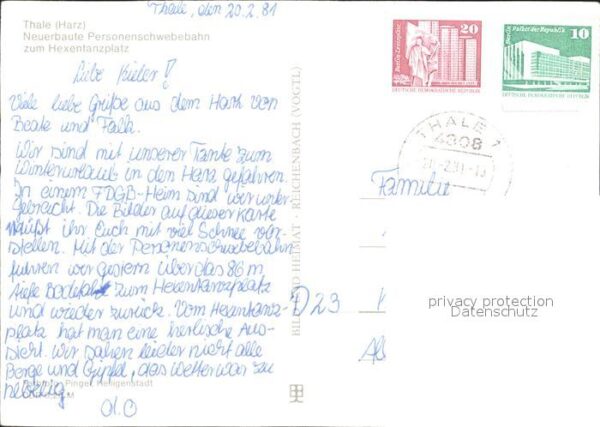 Thale, den 20.2.81
Thale (Harz)
Neuerbaute Personenschwebebahn
zum Hexentanzplatz
Liebe Kieler!
Viele liebe Grüße aus dem Harz von
Beate und Falk.
Wir sind mit unserer Tante zum
Winterurlaub in den Harz gefahren.
In einem FDGB-Heim sind wir unter-
gebracht. Die Bilder auf dieser Karte
müßt ihr Euch mit viel Schnee vor-
stellen. Mit der Personenschwebebahn
fuhren wir gestern über das 86 m
tiefe Bodetal zum Hexentanzplatz
und wieder zurück. Vom Hexentanz-
platz hat man eine herrliche Aus-
sicht. Wir sahen leider nicht alle
Berge und Gipfel, das Wetter war zu
nebelig.
d.O
Pinger, Heiligenstadt
BILD UND HEIMAT · REICHENBACH (VOGTL)
Berlin, Leninplatz
20
DEUTSCHE DEMOKRATISCHE REPUBLIK
Berlin, Palast der Republik
10
DEUTSCHE DEMOKRATISCHE REPUBLIK
THALE 1
4308
Familie
D 23
privacy protection
Datenschutz